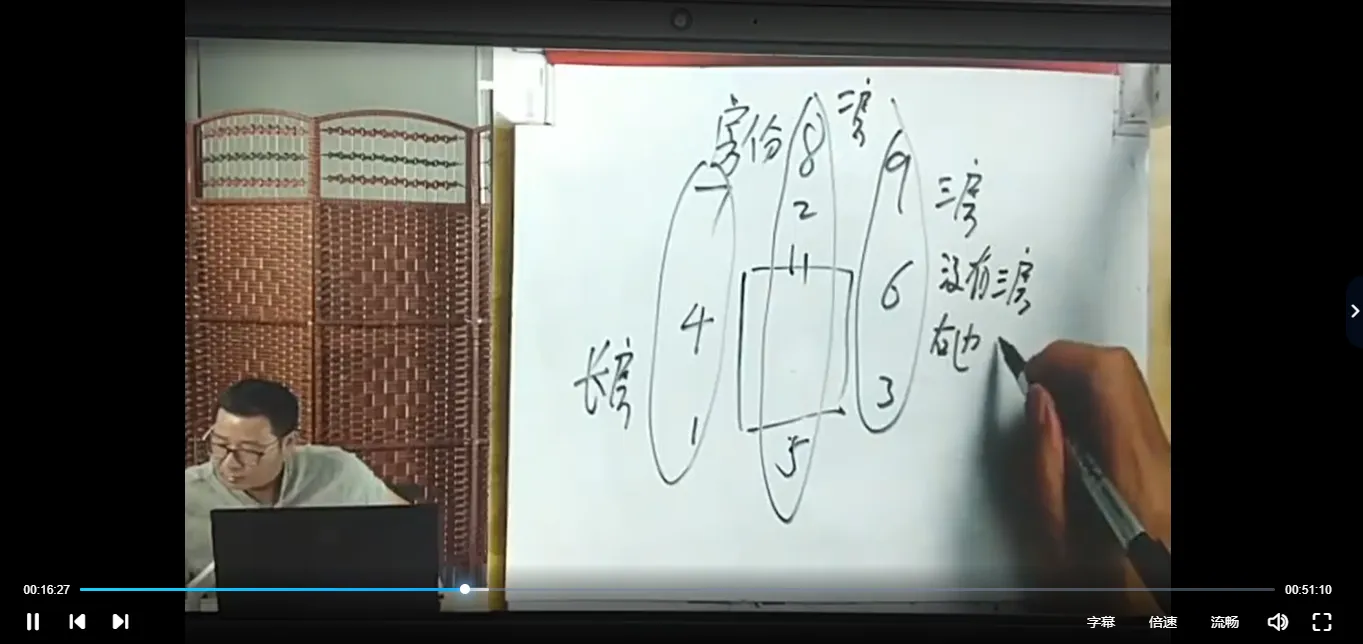 房份
二房
8
9
7
三房
2
11
没有三房
6
4
右边
长房
3
1
5
00:16:27
00:51:10
字幕
倍速
流畅